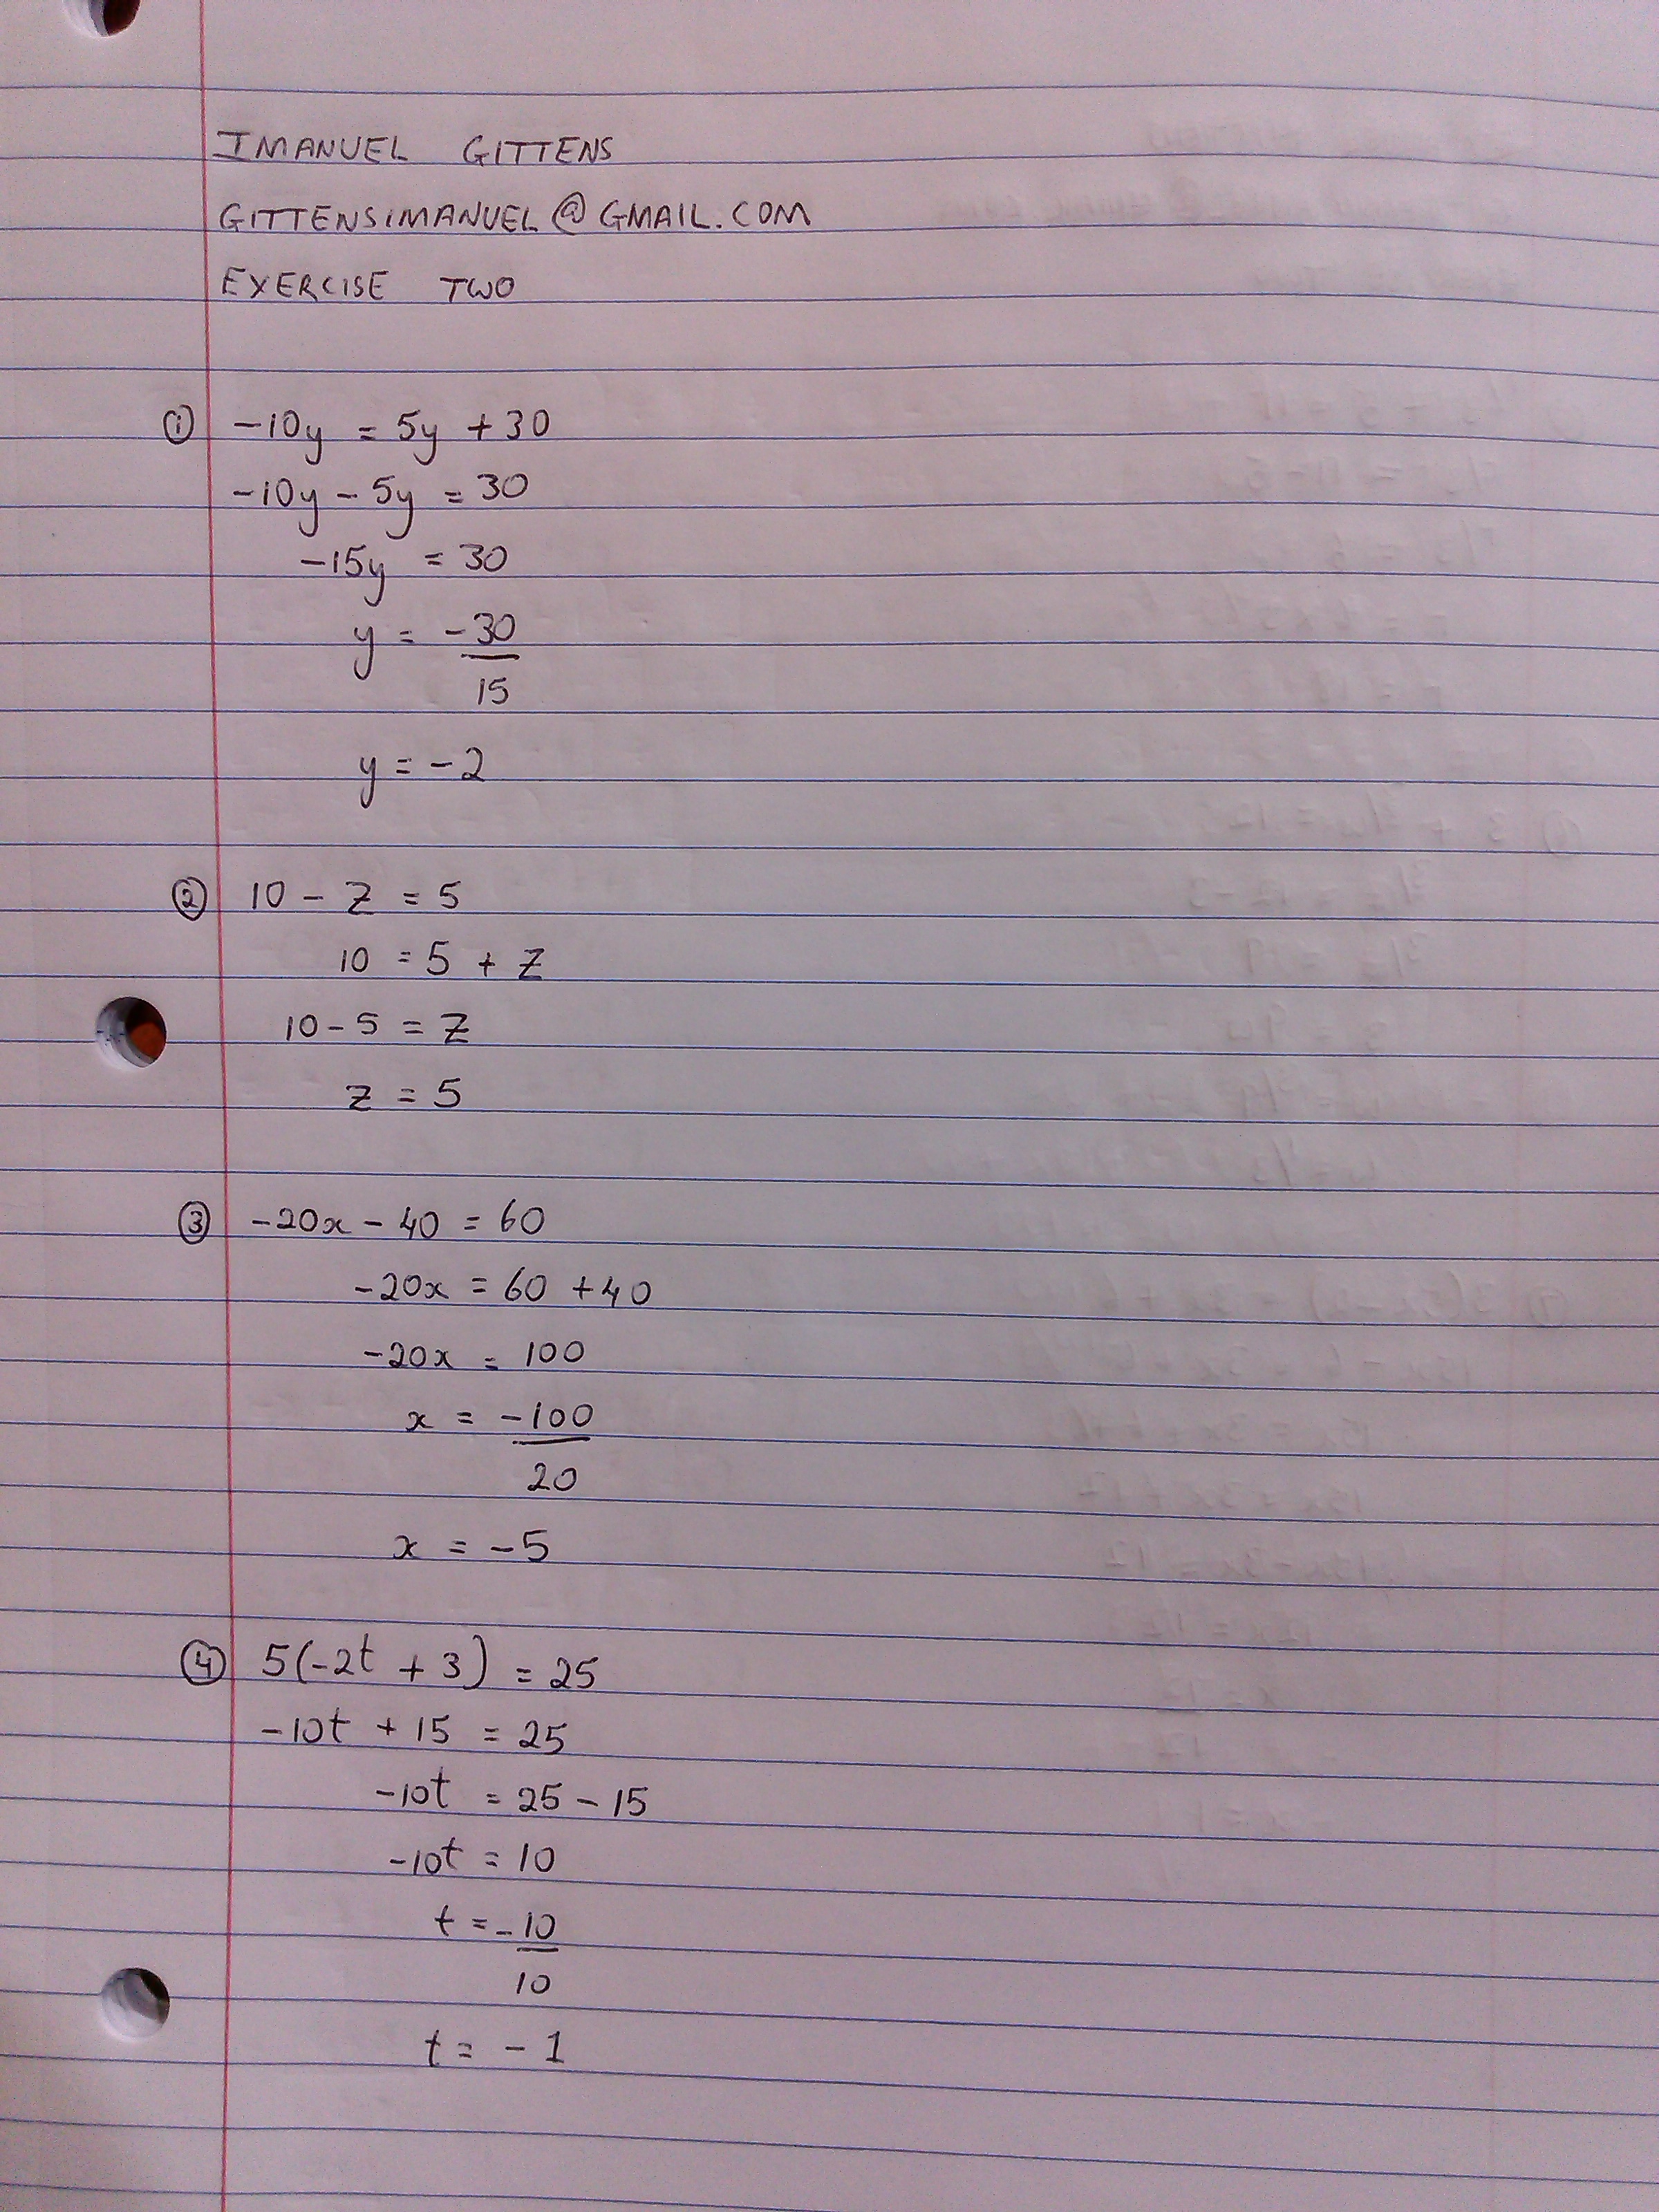 IMANUEL GITTENS
GITTENSIMANUEL@GMAIL.COM
EXERCISE TWO
① -10y = 5y + 30
-10y - 5y = 30
-15y = 30
y = -30
15
y = -2
② 10 - z = 5
10 = 5 + z
10 - 5 = z
z = 5
③ -20x - 40 = 60
-20x = 60 + 40
-20x = 100
x = -100
20
x = -5
④ 5(-2t + 3) = 25
-10t + 15 = 25
-10t = 25 - 15
-10t = 10
t = -10
10
t = -1